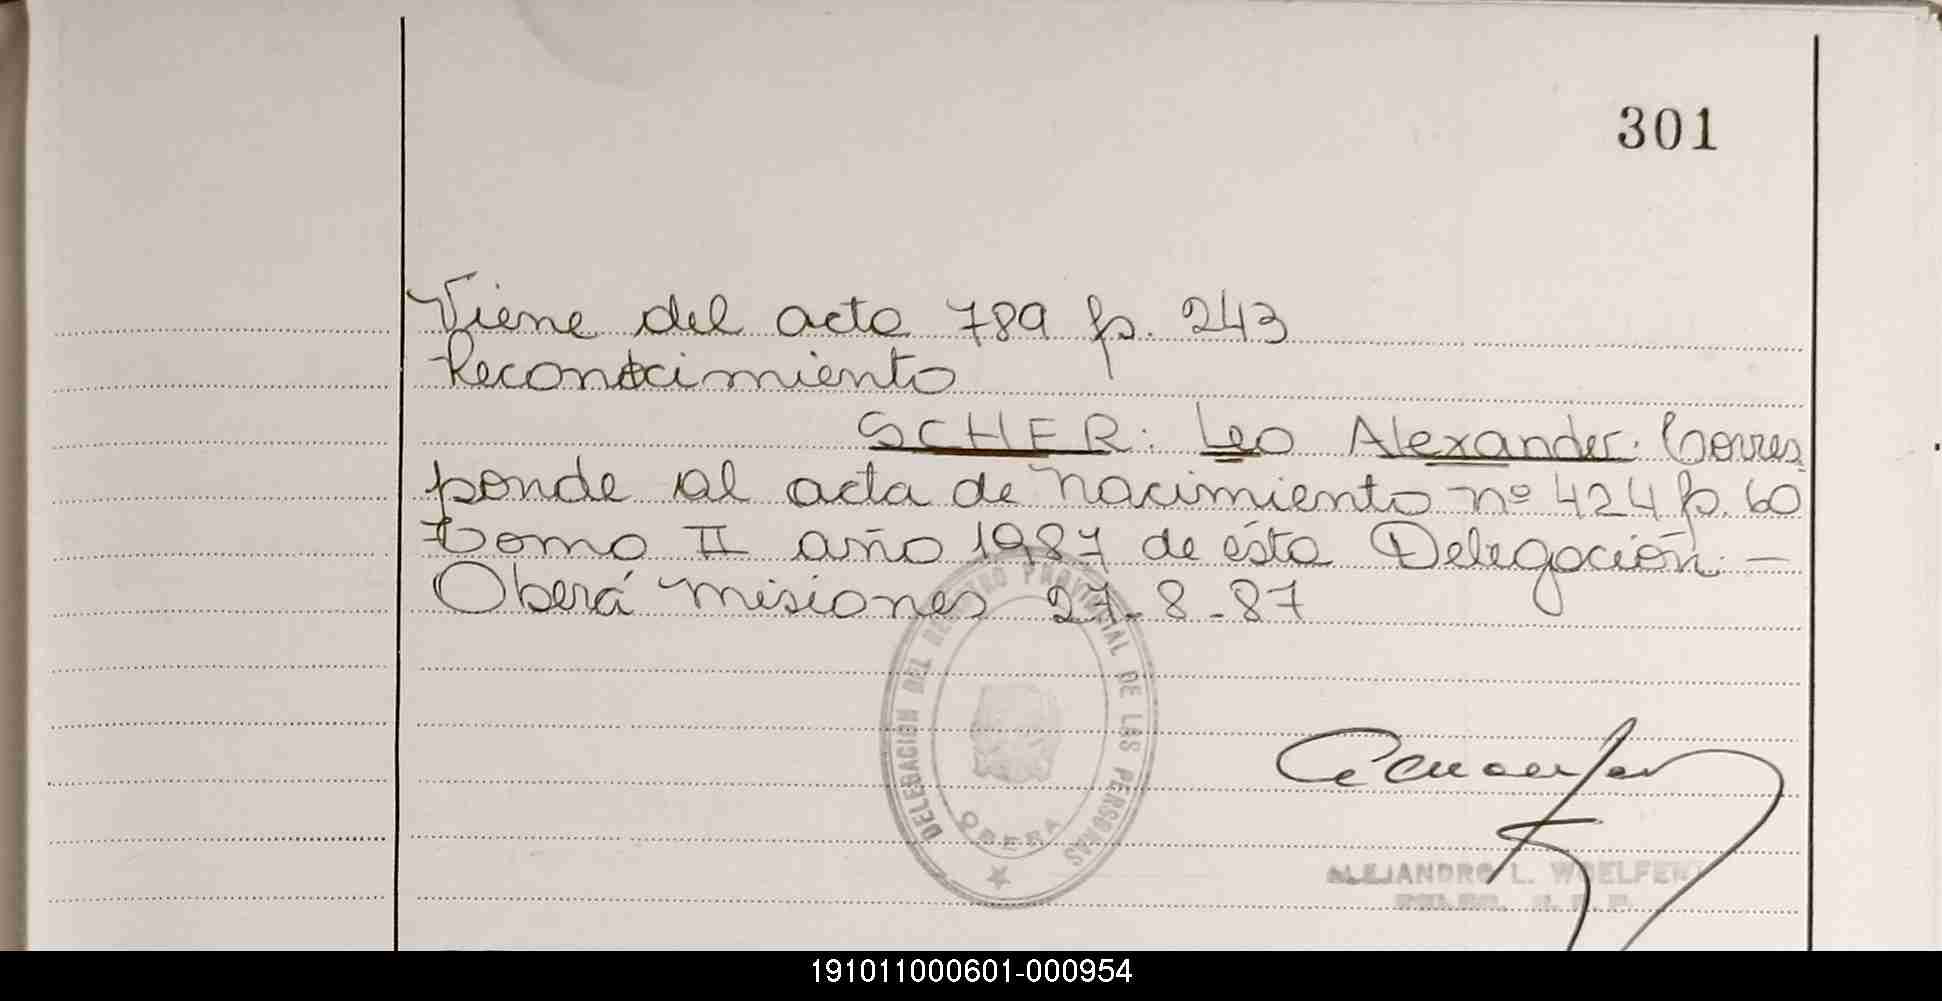 301
Viene del acta 789 fs. 243
Reconocimiento
SCHER: Leo Alexander. Corres
ponde al acta de nacimiento nº 424 fs. 60
Tomo II año 1987 de ésta Delegación. —
Oberá Misiones 27-8-87
DELEGACION DEL REGISTRO PROVINCIAL DE LAS PERSONAS
OBERA
ALEJANDRO L.
191011000601-000954